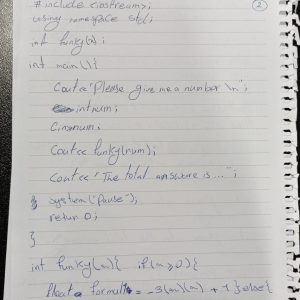 #include <iostream>;
2
using namespace std;
int funky(n);
int main(){
Cout<<"Please give me a number \n";
int num;
Cin>>num;
Cout<< funky(num);
Cout<<"The total answare is...";
system("Pause");
return 0;
}
int funky(m){ if(m>0){
float formula = -3(m)(m) + 7 } else {